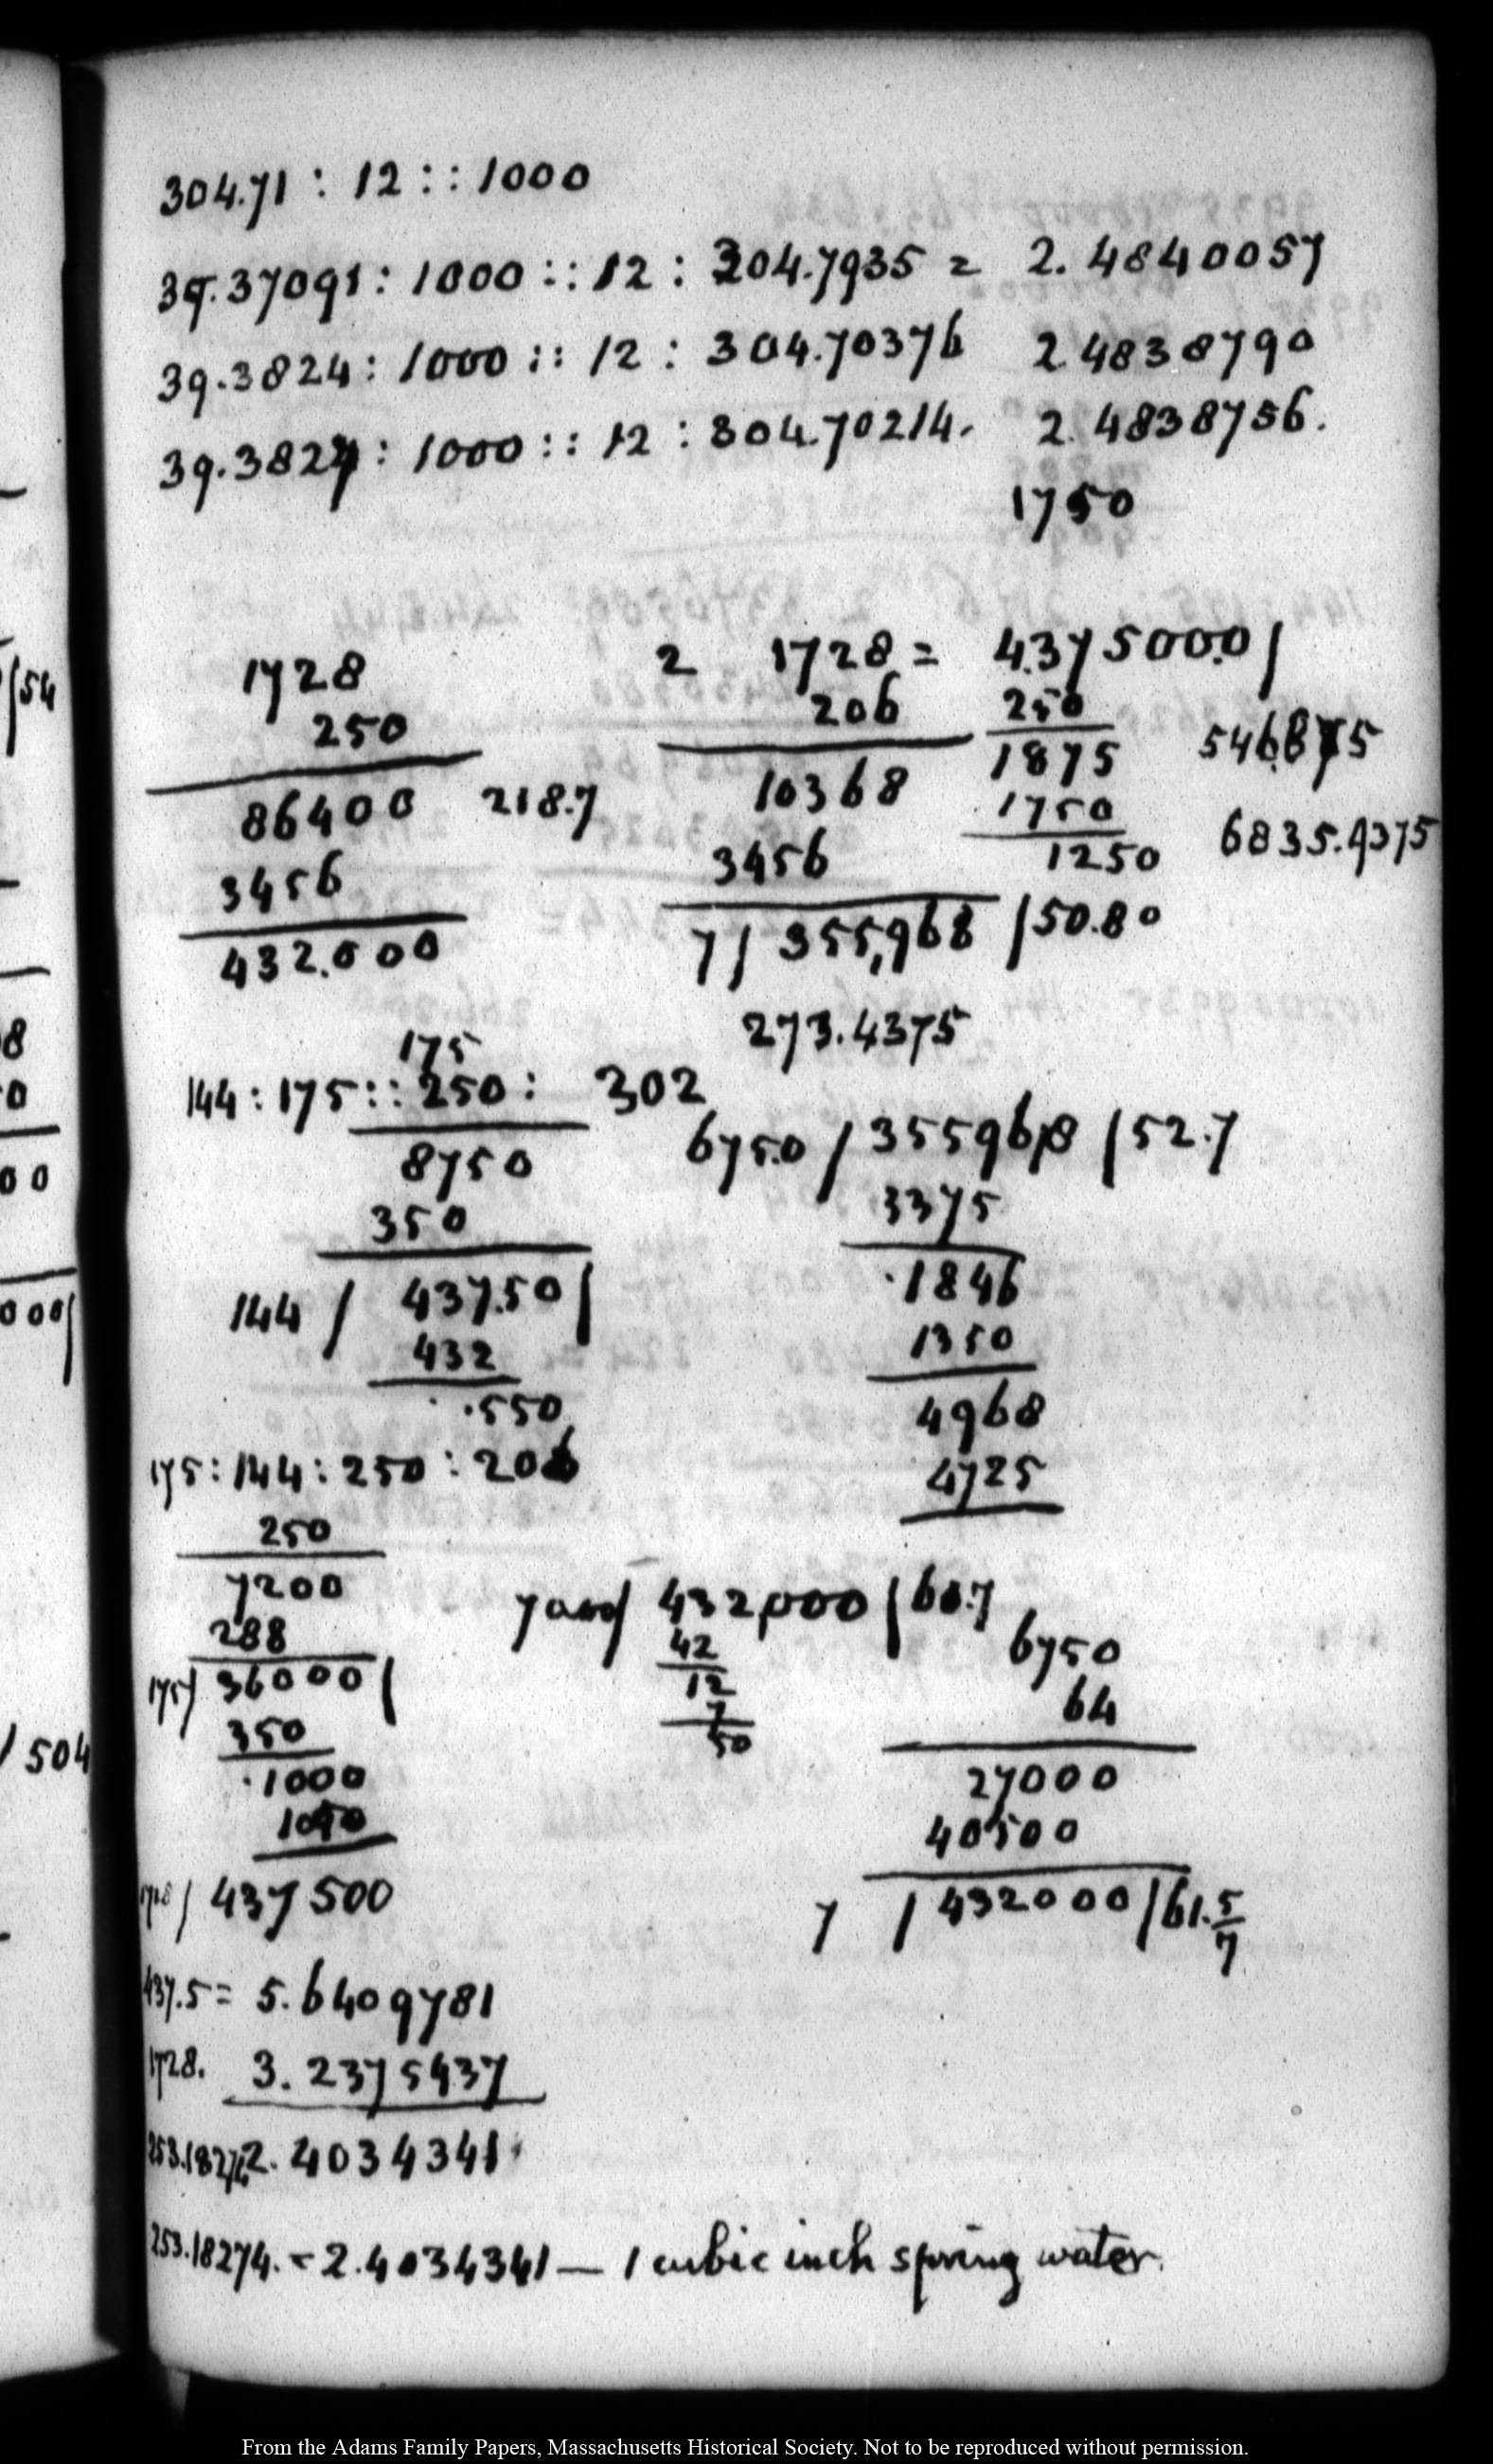 304.71 : 12 :: 1000
39.37091 : 1000 :: 12 : 304.7935 = 2.4840057
39.3824 : 1000 :: 12 : 304.70376 2.4838790
39.3827 : 1000 :: 12 : 304.70214. 2.4838756.
1750
1728
250
86400 218.7
3456
432.000
2 1728 = 4375000 /
206 250
10368 1875 546.875
3456 1750
1250 6835.9375
7 / 355,968 / 50.80
273.4375
175
144 : 175 :: 250 : 302
8750
350
144 / 437.50 /
432
.550
6750 / 355968 / 52.7
3375
.1846
1350
4968
4725
175 : 144 : 250 : 206
250
7200
288
175 / 36000 /
350
.1000
1050
7000 / 432,000 / 61.7
42
12
7
50
6750
64
27000
40500
7 / 432000 / 61.5/7
1728 / 437500
437.5 = 5.6409781
1728. 3.2375437
253.18274 2.4034341
253.18274. = 2.4034341 — 1 cubic inch spring water.
/54
8
0
00
000/
/ 504
From the Adams Family Papers, Massachusetts Historical Society. Not to be reproduced without permission.